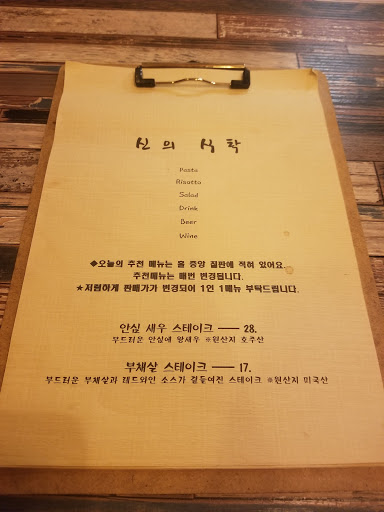 신의 식탁
Pasta
Risotto
Salad
Drink
Beer
Wine
◆오늘의 추천 메뉴는 홀 중앙 칠판에 적혀 있어요.
추천메뉴는 매번 변경됩니다.
★저렴하게 판매가가 변경되어 1인 1메뉴 부탁드립니다.
안심 새우 스테이크 —— 28.
부드러운 안심에 왕새우 ※원산지 호주산
부채살 스테이크 —— 17.
부드러운 부채살과 레드와인 소스가 곁들여진 스테이크 ※원산지 미국산